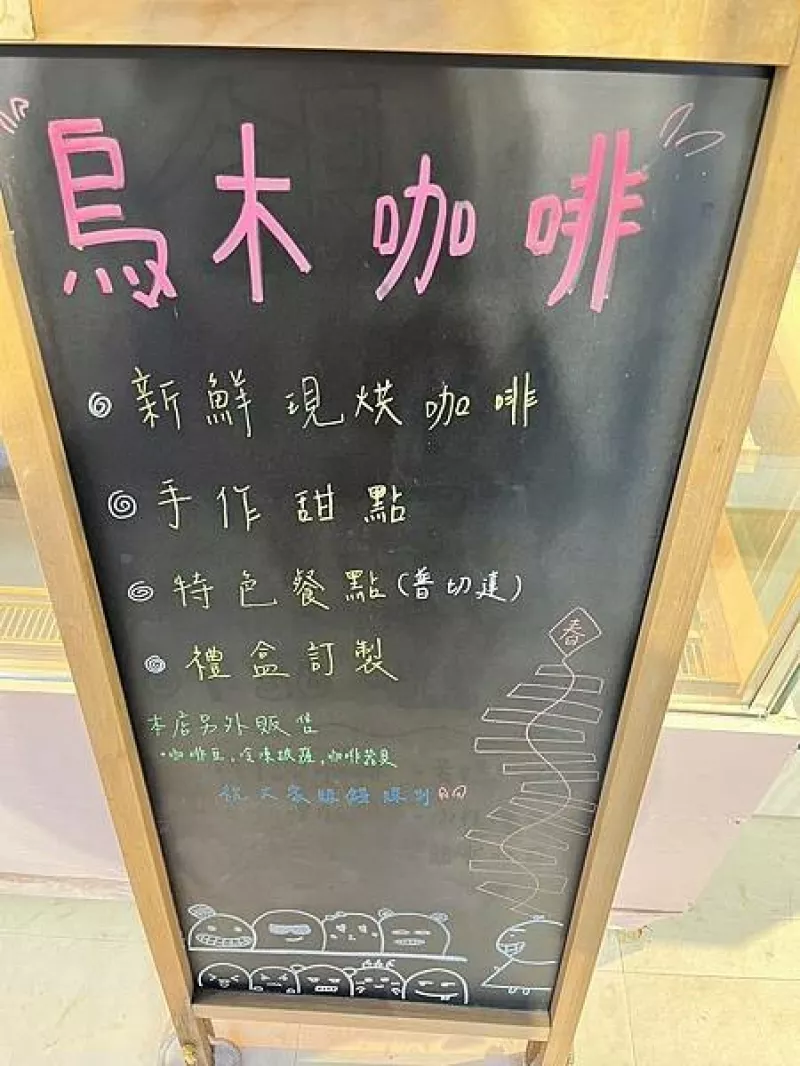 烏木咖啡
新鮮現烘咖啡
手作甜點
特色餐點(普切達)
禮盒訂製
本店另外販售
・咖啡豆,冷凍披薩,咖啡器具
祝大家
春